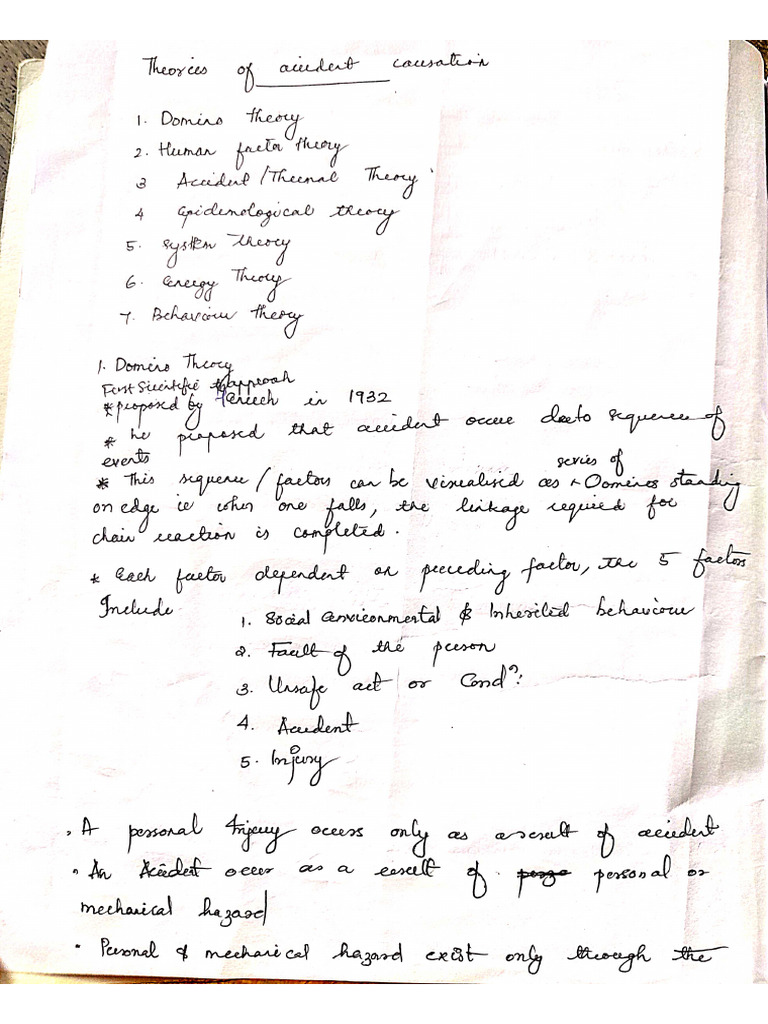 Theories of accident causation
1. Domino theory
2. Human factor theory
3 Accident / Theenal Theory
4 Epidemological theory
5. System theory
6. Energy Theory
7. Behaviour theory
1. Domino Theory
First Scientific approach
* proposed by in 1932
* he proposed that accident occur due to sequence of
events
series of
* This sequence / factors can be visualised as Dominos standing
on edge ie when one falls, the linkage required for
chain reaction is completed.
* Each factor dependent on preceding factor, the 5 factors
Include
1. Social environmental & Inherited behaviour
2. Fault of the person
3. Unsafe act or Condn:
4. Accident
5. Injury
• A personal Injury occurs only as a result of accident
• An Accident occur as a result of personal or
mechanical hazard
• Personal & mechanical hazard exist only through the